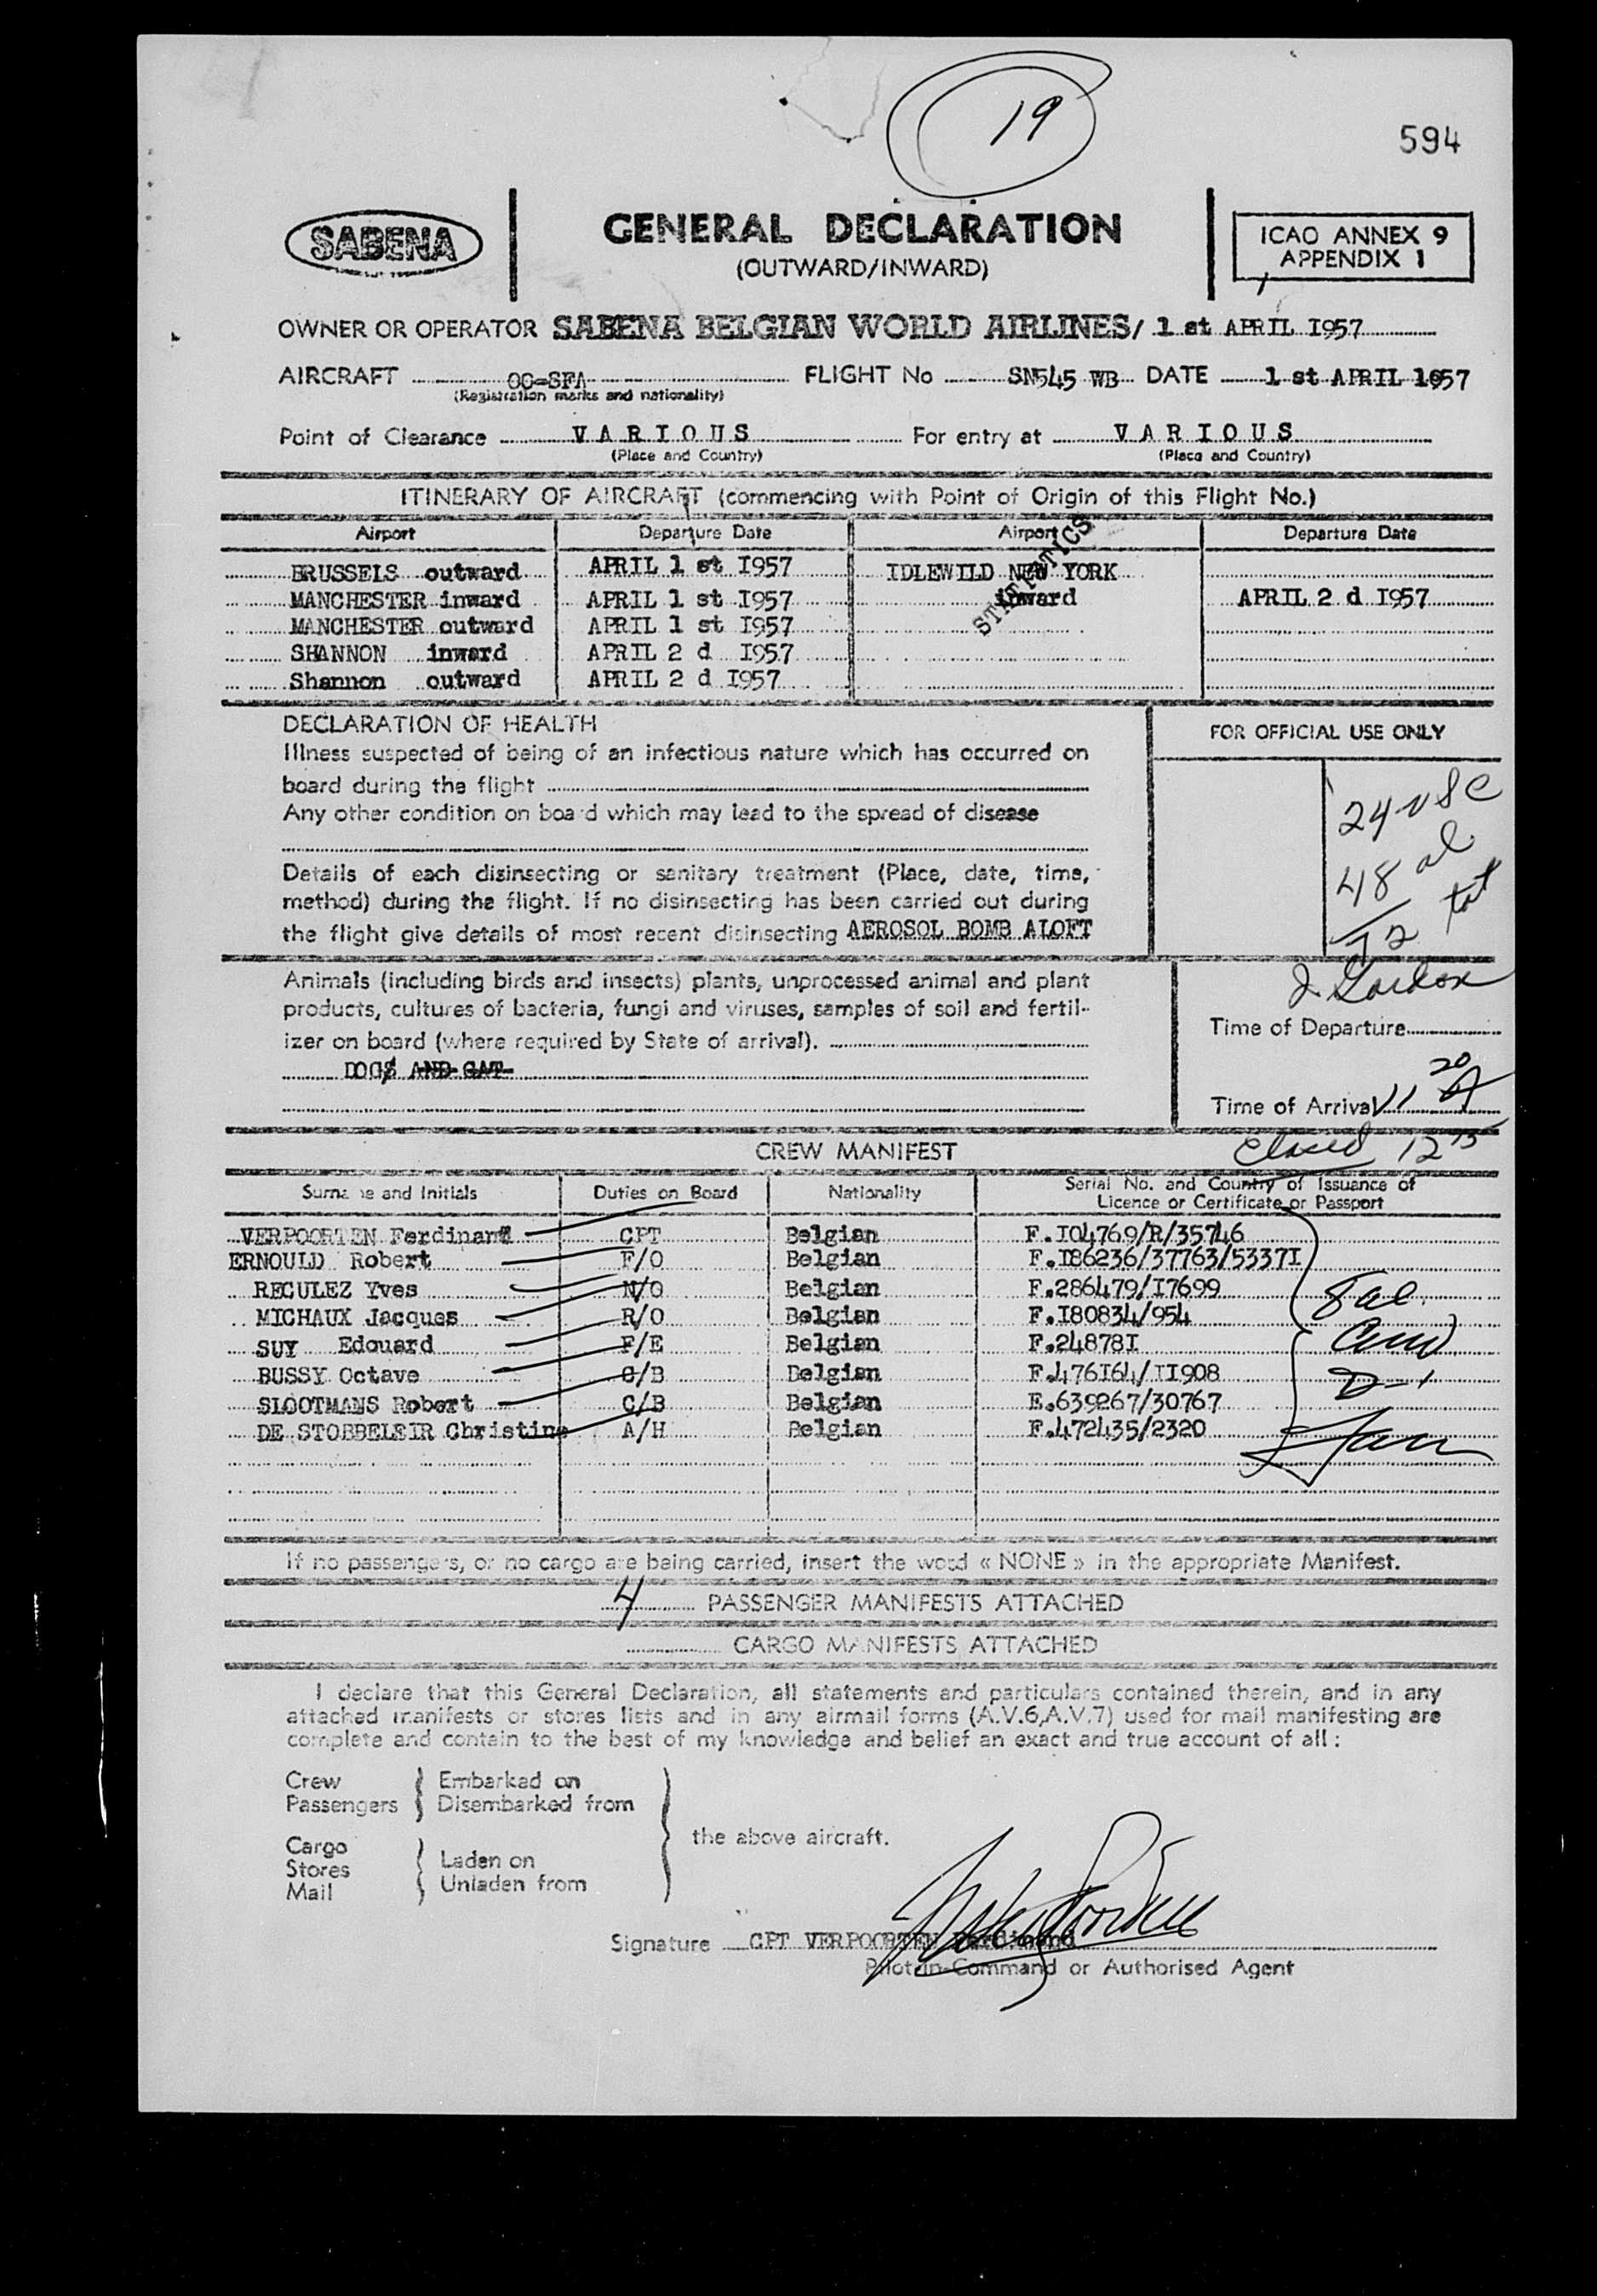 19
594
SABENA
GENERAL DECLARATION
(OUTWARD/INWARD)
ICAO ANNEX 9
APPENDIX 1
OWNER OR OPERATOR SABENA BELGIAN WORLD AIRLINES/ 1 st APRIL I957
AIRCRAFT OO-SFA FLIGHT No SN545 WB DATE 1 st APRIL 1957
(Registration marks and nationality)
Point of Clearance VARIOUS For entry at VARIOUS
(Place and Country) (Place and Country)
ITINERARY OF AIRCRAFT (commencing with Point of Origin of this Flight No.)
Airport Departure Date Airport Departure Date
STATISTICS
BRUSSELS outward APRIL 1 st I957 IDLEWILD NEW YORK
MANCHESTER inward APRIL 1 st I957 inward APRIL 2 d I957
MANCHESTER outward APRIL 1 st I957
SHANNON inward APRIL 2 d I957
Shannon outward APRIL 2 d I957
DECLARATION OF HEALTH
Illness suspected of being of an infectious nature which has occurred on
board during the flight
Any other condition on board which may lead to the spread of disease
Details of each disinsecting or sanitary treatment (Place, date, time,
method) during the flight. If no disinsecting has been carried out during
the flight give details of most recent disinsecting AEROSOL BOMB ALOFT
FOR OFFICIAL USE ONLY
24 usc
48 al
72 tot
Animals (including birds and insects) plants, unprocessed animal and plant
products, cultures of bacteria, fungi and viruses, samples of soil and fertil-
izer on board (where required by State of arrival).
DOGS AND CAT
Time of Departure
Time of Arrival 11 20 A
Closed 12 15
CREW MANIFEST
Surname and Initials Duties on Board Nationality Serial No. and Country of Issuance of
Licence or Certificate or Passport
VERPOORTEN Ferdinand CPT Belgian F.I04769/R/35746
ERNOULD Robert F/O Belgian F.I86236/37763/5337I
RECULEZ Yves N/O Belgian F.286479/I7699
MICHAUX Jacques R/O Belgian F.I80834/954
SUY Edouard F/E Belgian F.24878I
BUSSY Octave C/B Belgian F.476I64/II908
SLOOTMANS Robert C/B Belgian E.639267/30767
DE STOBBELEIR Christine A/H Belgian F.472435/2320
8 al.
D-1
If no passengers, or no cargo are being carried, insert the word « NONE » in the appropriate Manifest.
4 PASSENGER MANIFESTS ATTACHED
CARGO MANIFESTS ATTACHED
I declare that this General Declaration, all statements and particulars contained therein, and in any
attached manifests or stores lists and in any airmail forms (A.V.6,A.V.7) used for mail manifesting are
complete and contain to the best of my knowledge and belief an exact and true account of all :
Crew Embarked on
Passengers Disembarked from
the above aircraft.
Cargo
Stores Laden on
Mail Unladen from
Signature CPT VERPOORTEN Ferdinand
Pilot-in-Command or Authorised Agent